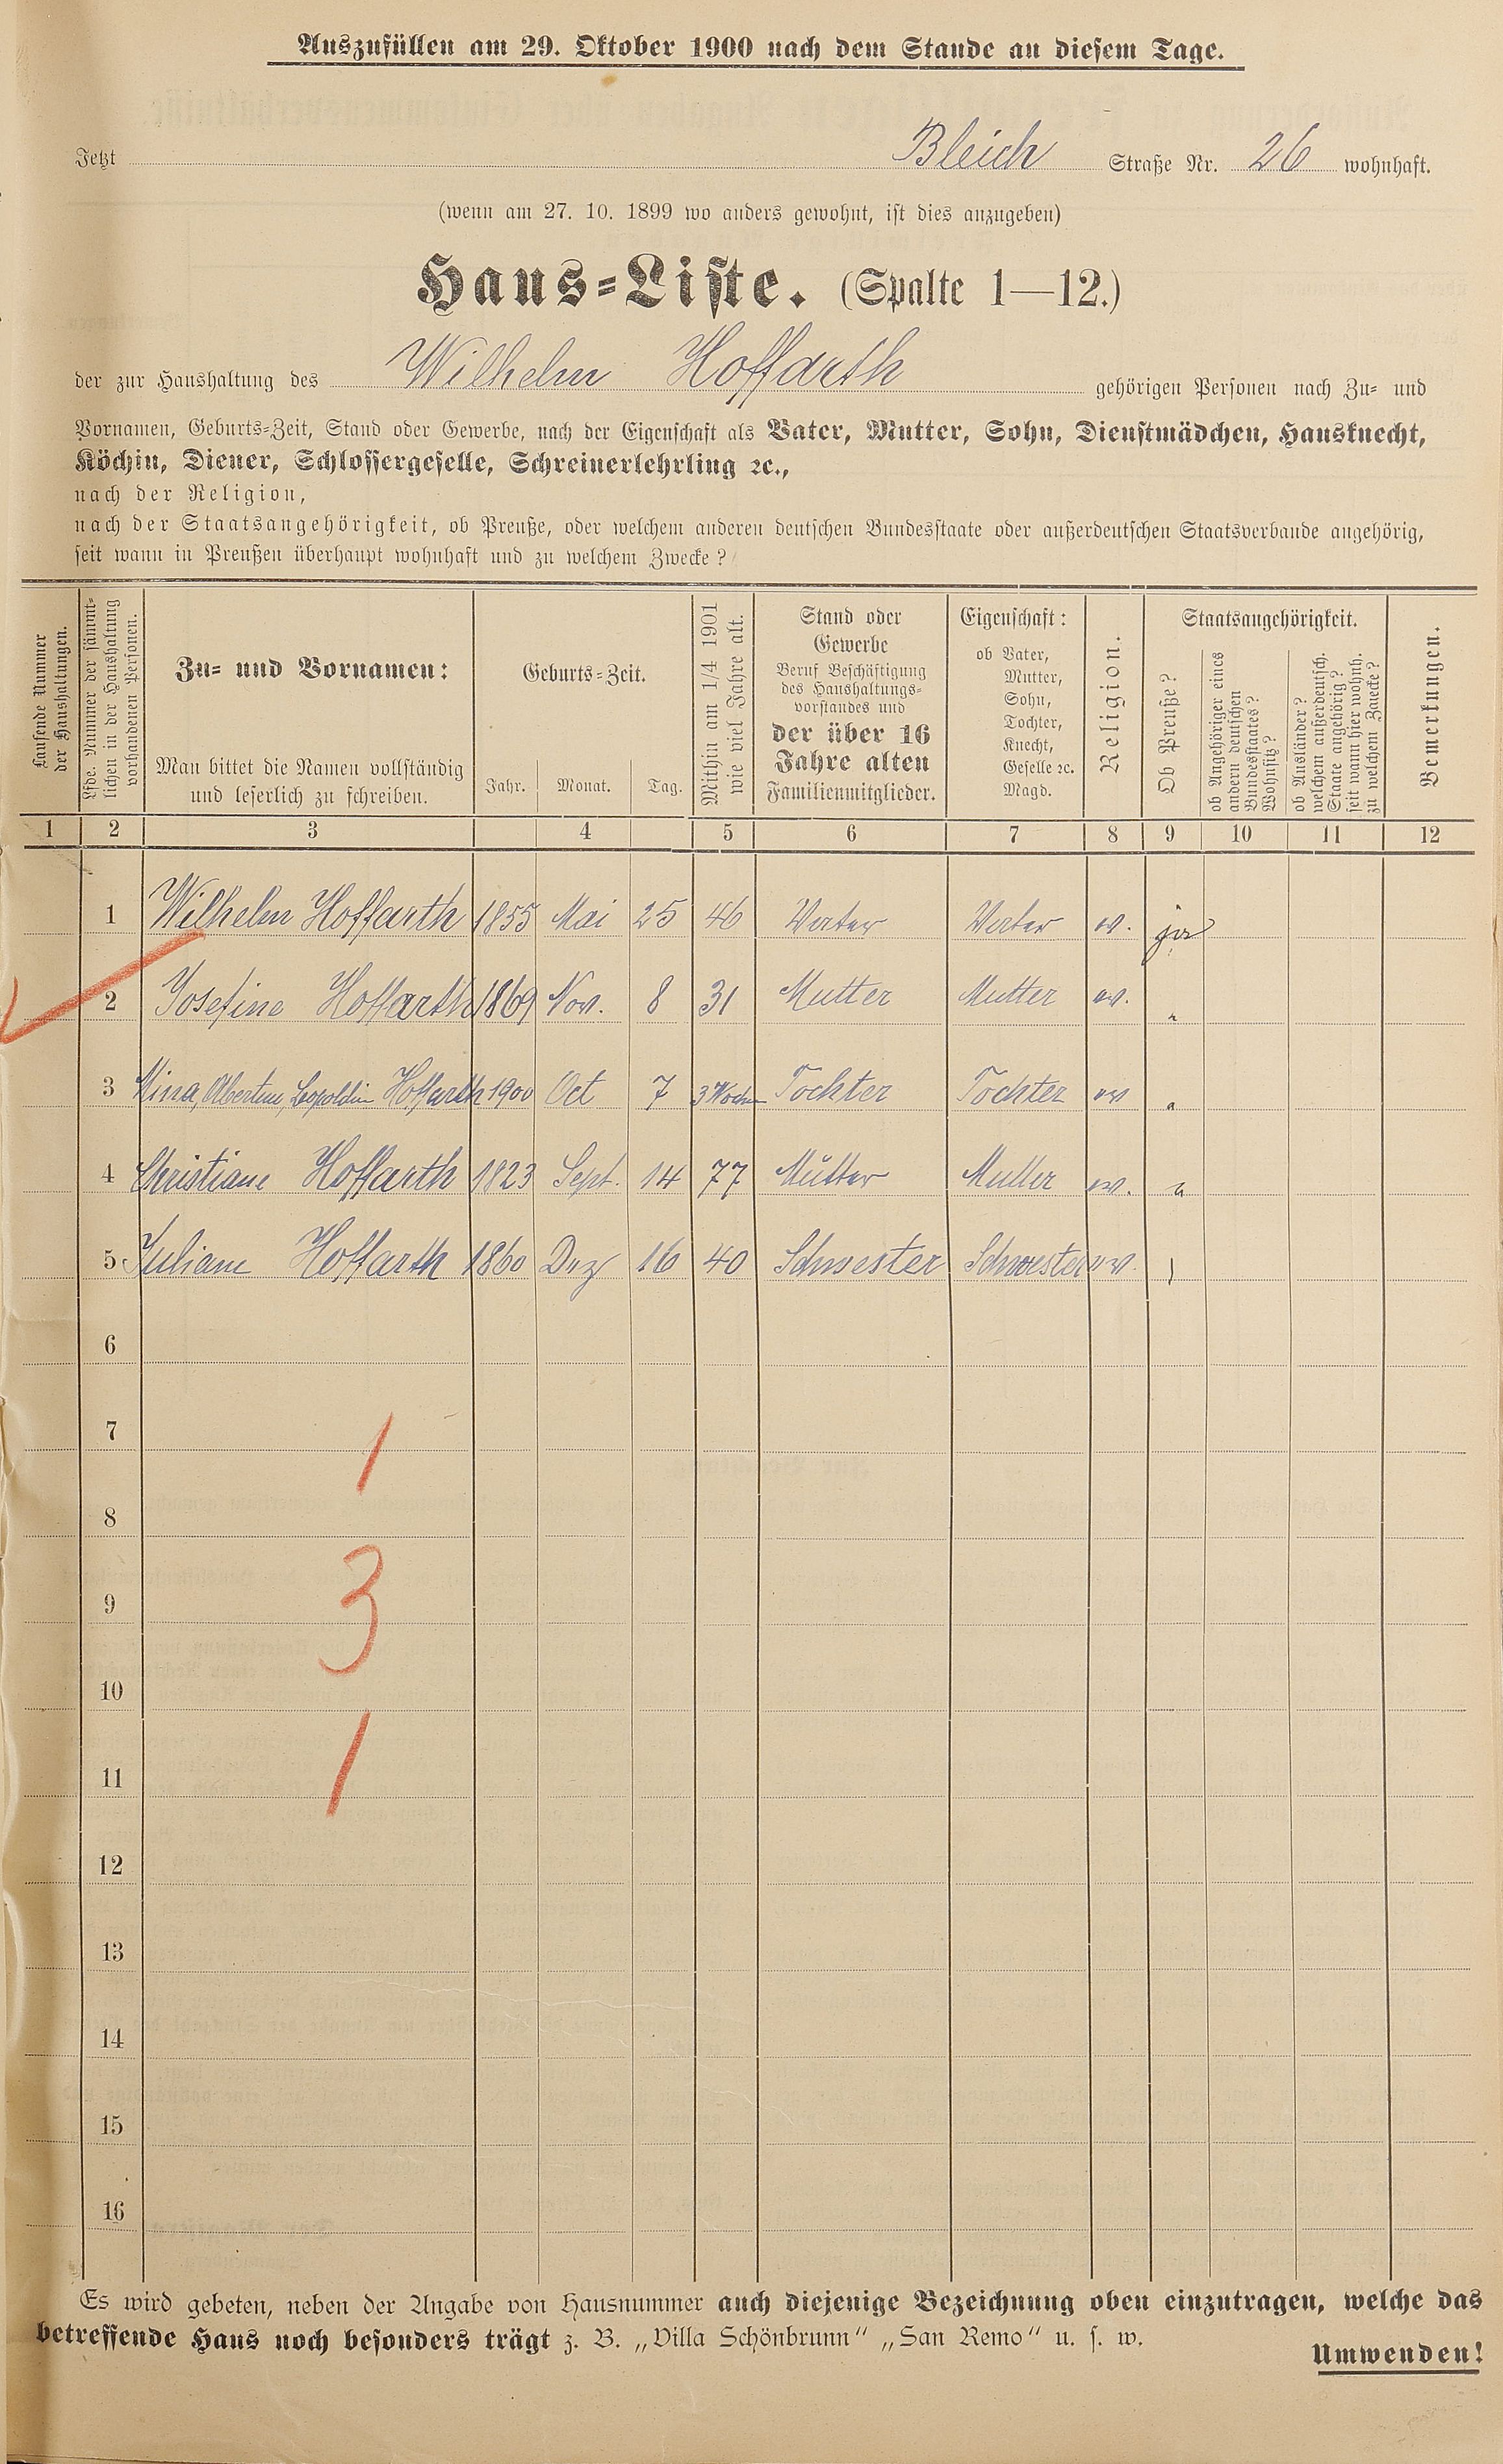 Auszufüllen am 29. Oktober 1900 nach dem Stande an diesem Tage.
Jetzt Bleich Straße Nr. 26 wohnhaft.
(wenn am 27. 10. 1899 wo anders gewohnt, ist dies anzugeben)
Haus=Liste. (Spalte 1—12.)
der zur Haushaltung des Wilhelm Hoffarth gehörigen Personen nach Zu= und
Vornamen, Geburts=Zeit, Stand oder Gewerbe, nach der Eigenschaft als Vater, Mutter, Sohn, Dienstmädchen, Hausknecht,
Köchin, Diener, Schlossergeselle, Schreinerlehrling ꝛc.,
nach der Religion,
nach der Staatsangehörigkeit, ob Preuße, oder welchem anderen deutschen Bundesstaate oder außerdeutschen Staatsverbande angehörig,
seit wann in Preußen überhaupt wohnhaft und zu welchem Zwecke?
Laufende Nummer
der Haushaltungen.
Lfde. Nummer der sämmt-
lichen in der Haushaltung
vorhandenen Personen.
Zu= und Vornamen:
Man bittet die Namen vollständig
und leserlich zu schreiben.
Geburts=Zeit.
Jahr. Monat. Tag.
Mithin am 1/4 1901
wie viel Jahre alt.
Stand oder
Gewerbe
Beruf Beschäftigung
des Haushaltungs=
vorstandes und
der über 16
Jahre alten
Familienmitglieder.
Eigenschaft:
ob Vater,
Mutter,
Sohn,
Tochter,
Knecht,
Geselle ꝛc.
Magd.
Religion.
Staatsangehörigkeit.
Ob Preuße?
ob Angehöriger eines
andern deutschen
Bundesstaates?
Wohnsitz?
ob Ausländer?
welchem außerdeutsch.
Staate angehörig?
seit wann hier wohnh.
zu welchem Zwecke?
Bemerkungen.
1 2 3 4 5 6 7 8 9 10 11 12
1 Wilhelm Hoffarth 1855 Mai 25 46 Vater Vater ev. ja
2 Josefine Hoffarth 1869 Nov. 8 31 Mutter Mutter ev.
3 Mina, Albertine, Leopoldin Hoffarth 1900 Oct 7 3 Wochen Tochter Tochter ev
4 Christiane Hoffarth 1823 Sept. 14 77 Mutter Mutter ev.
5 Juliane Hoffarth 1860 Dez 16 40 Schwester Schwester ev.
6
7
1
8
3
9
10
1
11
12
13
14
15
16
Es wird gebeten, neben der Angabe von Hausnummer auch diejenige Bezeichnung oben einzutragen, welche das
betreffende Haus noch besonders trägt z. B. „Villa Schönbrunn“ „San Remo“ u. s. w.
Umwenden!